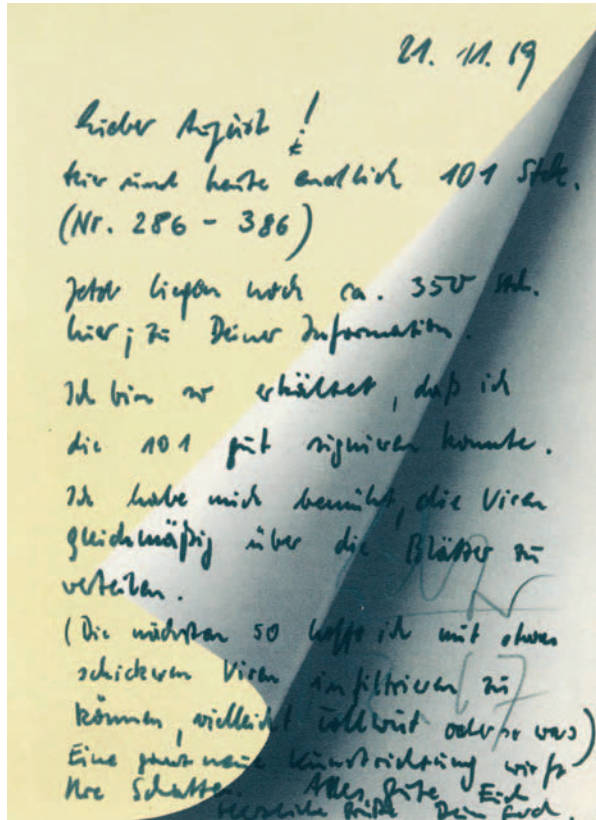 21. 11. 69
Lieber August!
hier sind heute endlich 101 Stck.
(Nr. 286 - 386)
Jetzt liegen noch ca. 350 Stck.
hier; zu Deiner Information.
Ich bin so erkältet, daß ich
die 101 gut signieren konnte.
Ich habe mich bemüht, die Viren
gleichmäßig über die Blätter zu
verteilen.
(Die nächsten 50 hoffe ich mit etwas
schickeren Viren infiltrieren zu
können, vielleicht Tollwut oder so was)
Eine ganz neue Kunstrichtung wirft
Ihre Schatten. Alles Gute Euch
Herzliche Grüße Dein